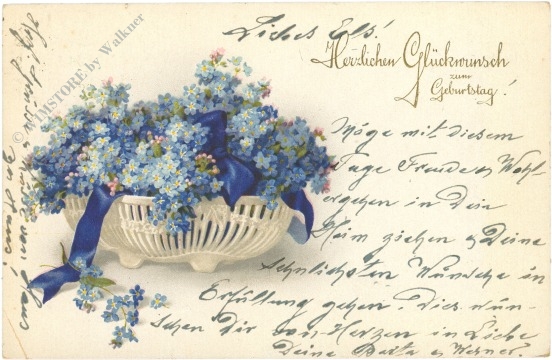 Liebes Els!
Herzlichen Glückwunsch
zum
Geburtstag!
Möge mit diesem
Tage Freude & Wohl-
ergehen in Dein
Heim ziehen & Deine
sehnlichsten Wünsche in
Erfüllung gehen. Dies wün-
schen Dir von Herzen in Liebe
Deine Berta & Werner.
© WIMSTORE by Walkner